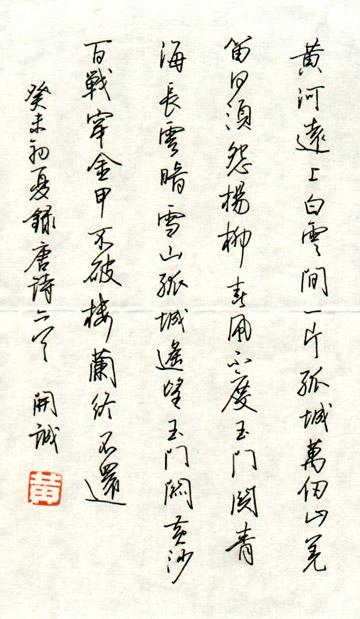 黄河遠上白雲間一片孤城萬仞山羌
笛何須怨楊柳春風不度玉门関青
海長雲暗雪山孤城遙望玉门關黄沙
百戦穿金甲不破楼蘭終不還
癸未初夏録唐詩二首 開誠
黄